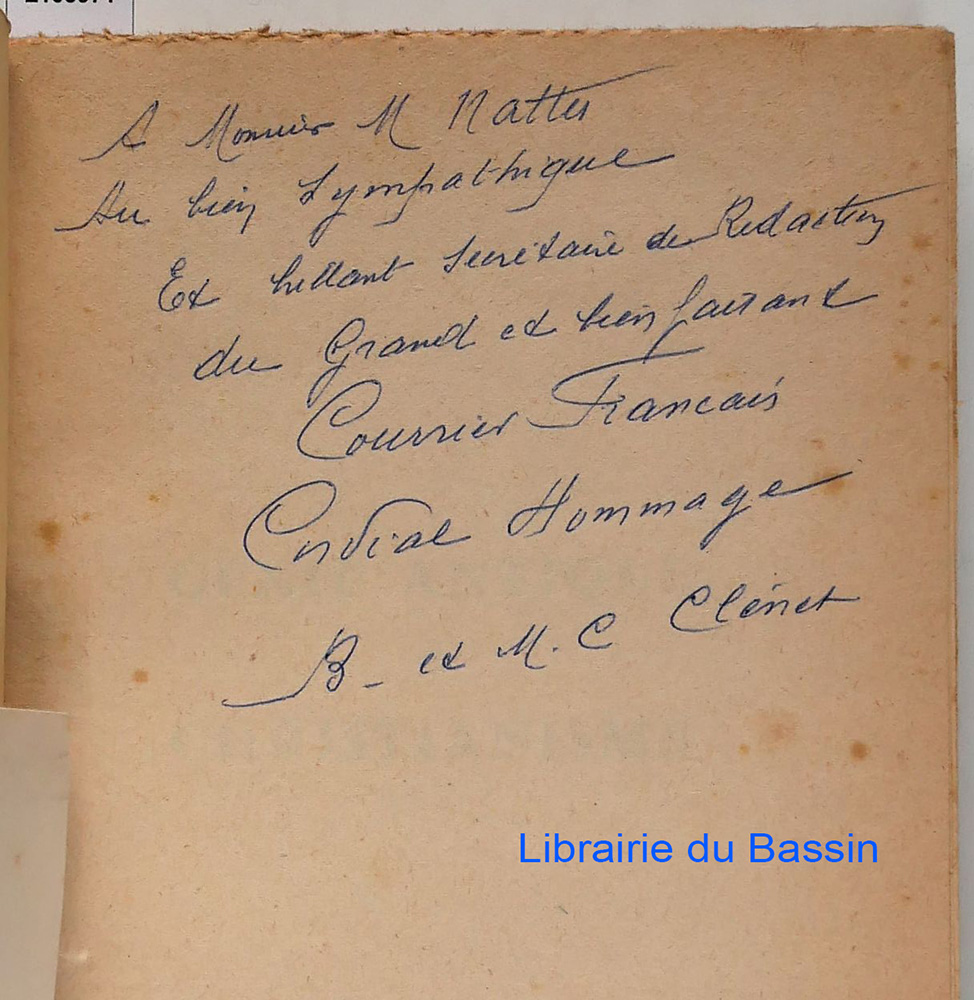 A Monsieur M Nattes
Au bien Sympathique
Et brillant Secrétaire de Redaction
du Grand et bienfaisant
Courrier Francais
Cordial Hommage
B - et M. C Clénet
Librairie du Bassin